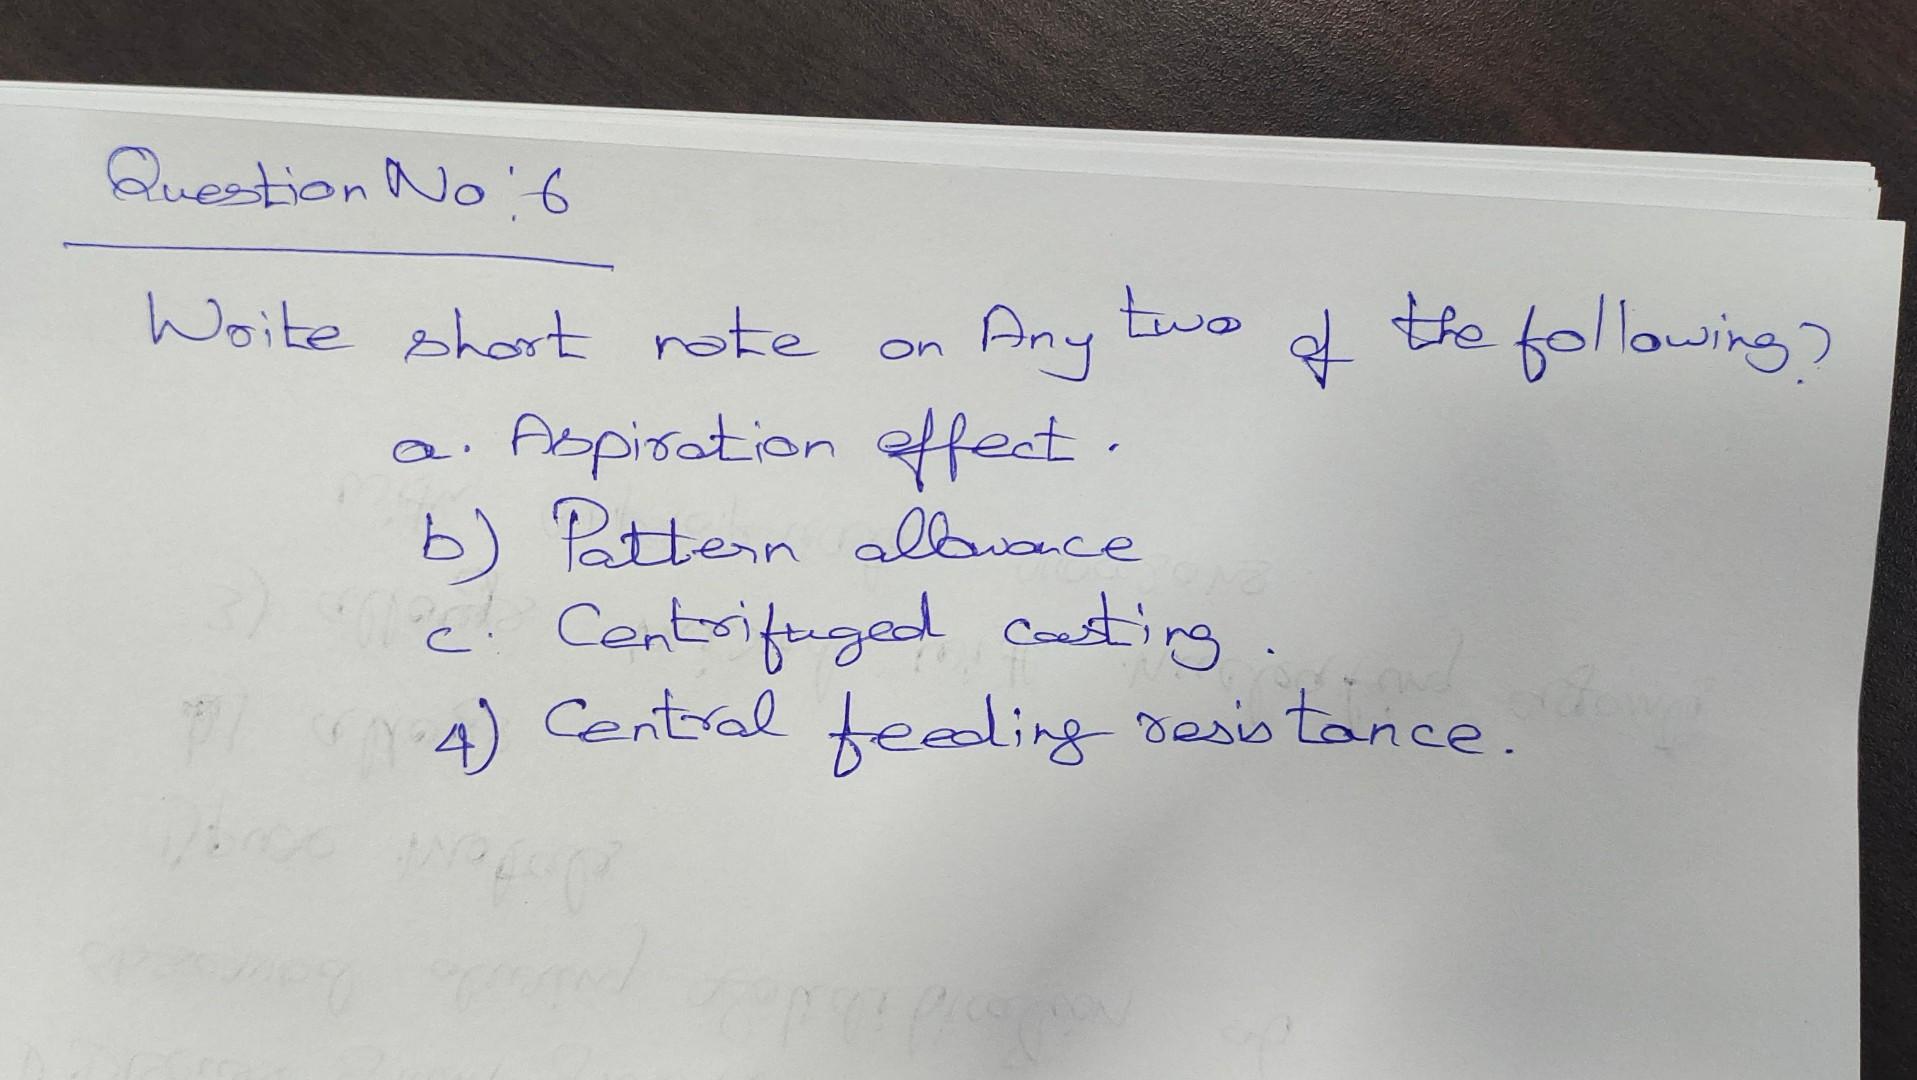 Question No: 6
Write short note on Any two of the following?
a. Aspiration effect.
b) Pattern allowance
c. Centrifuged casting.
4) Central feeding resistance.